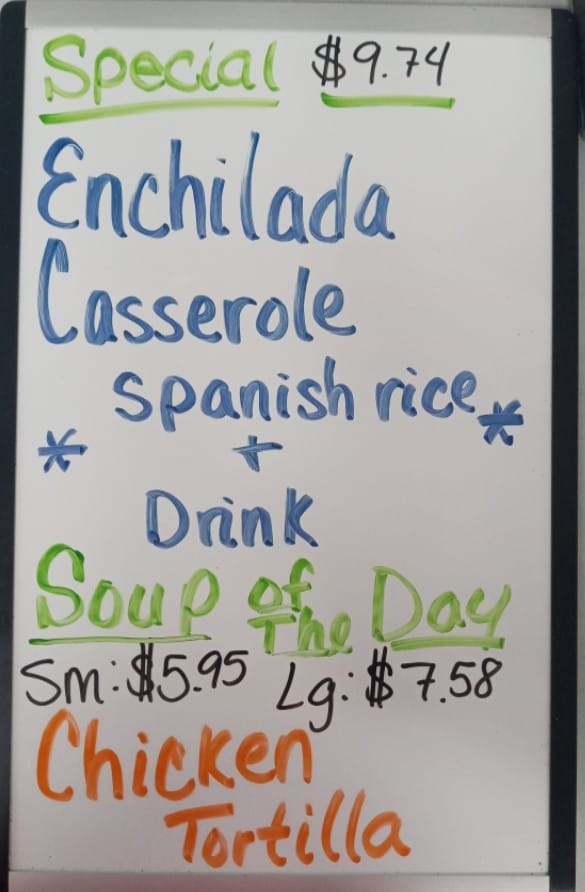 Special $9.74
Enchilada
Casserole
Spanish rice
* + *
Drink
Soup of The Day
Sm: $5.95 Lg: $7.58
Chicken
Tortilla